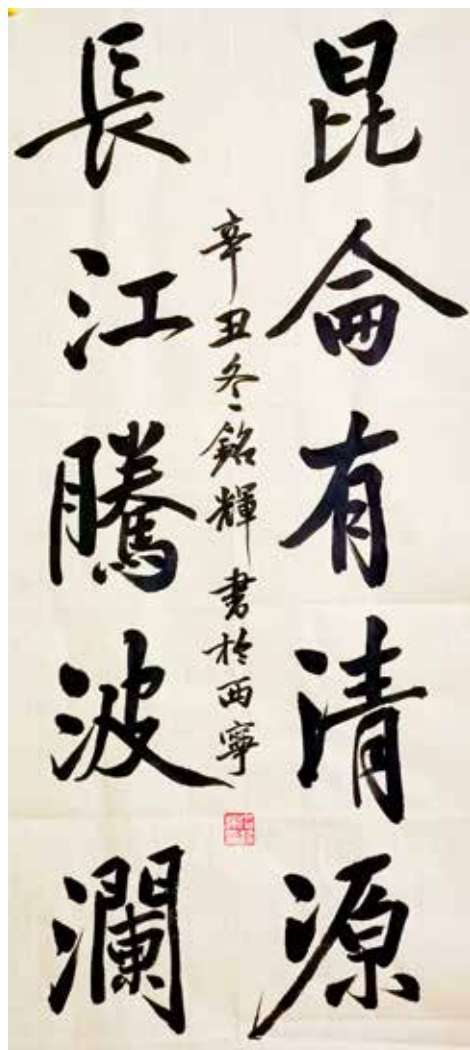 昆侖有清源
長江騰波瀾
辛丑冬銘輝書於西寧